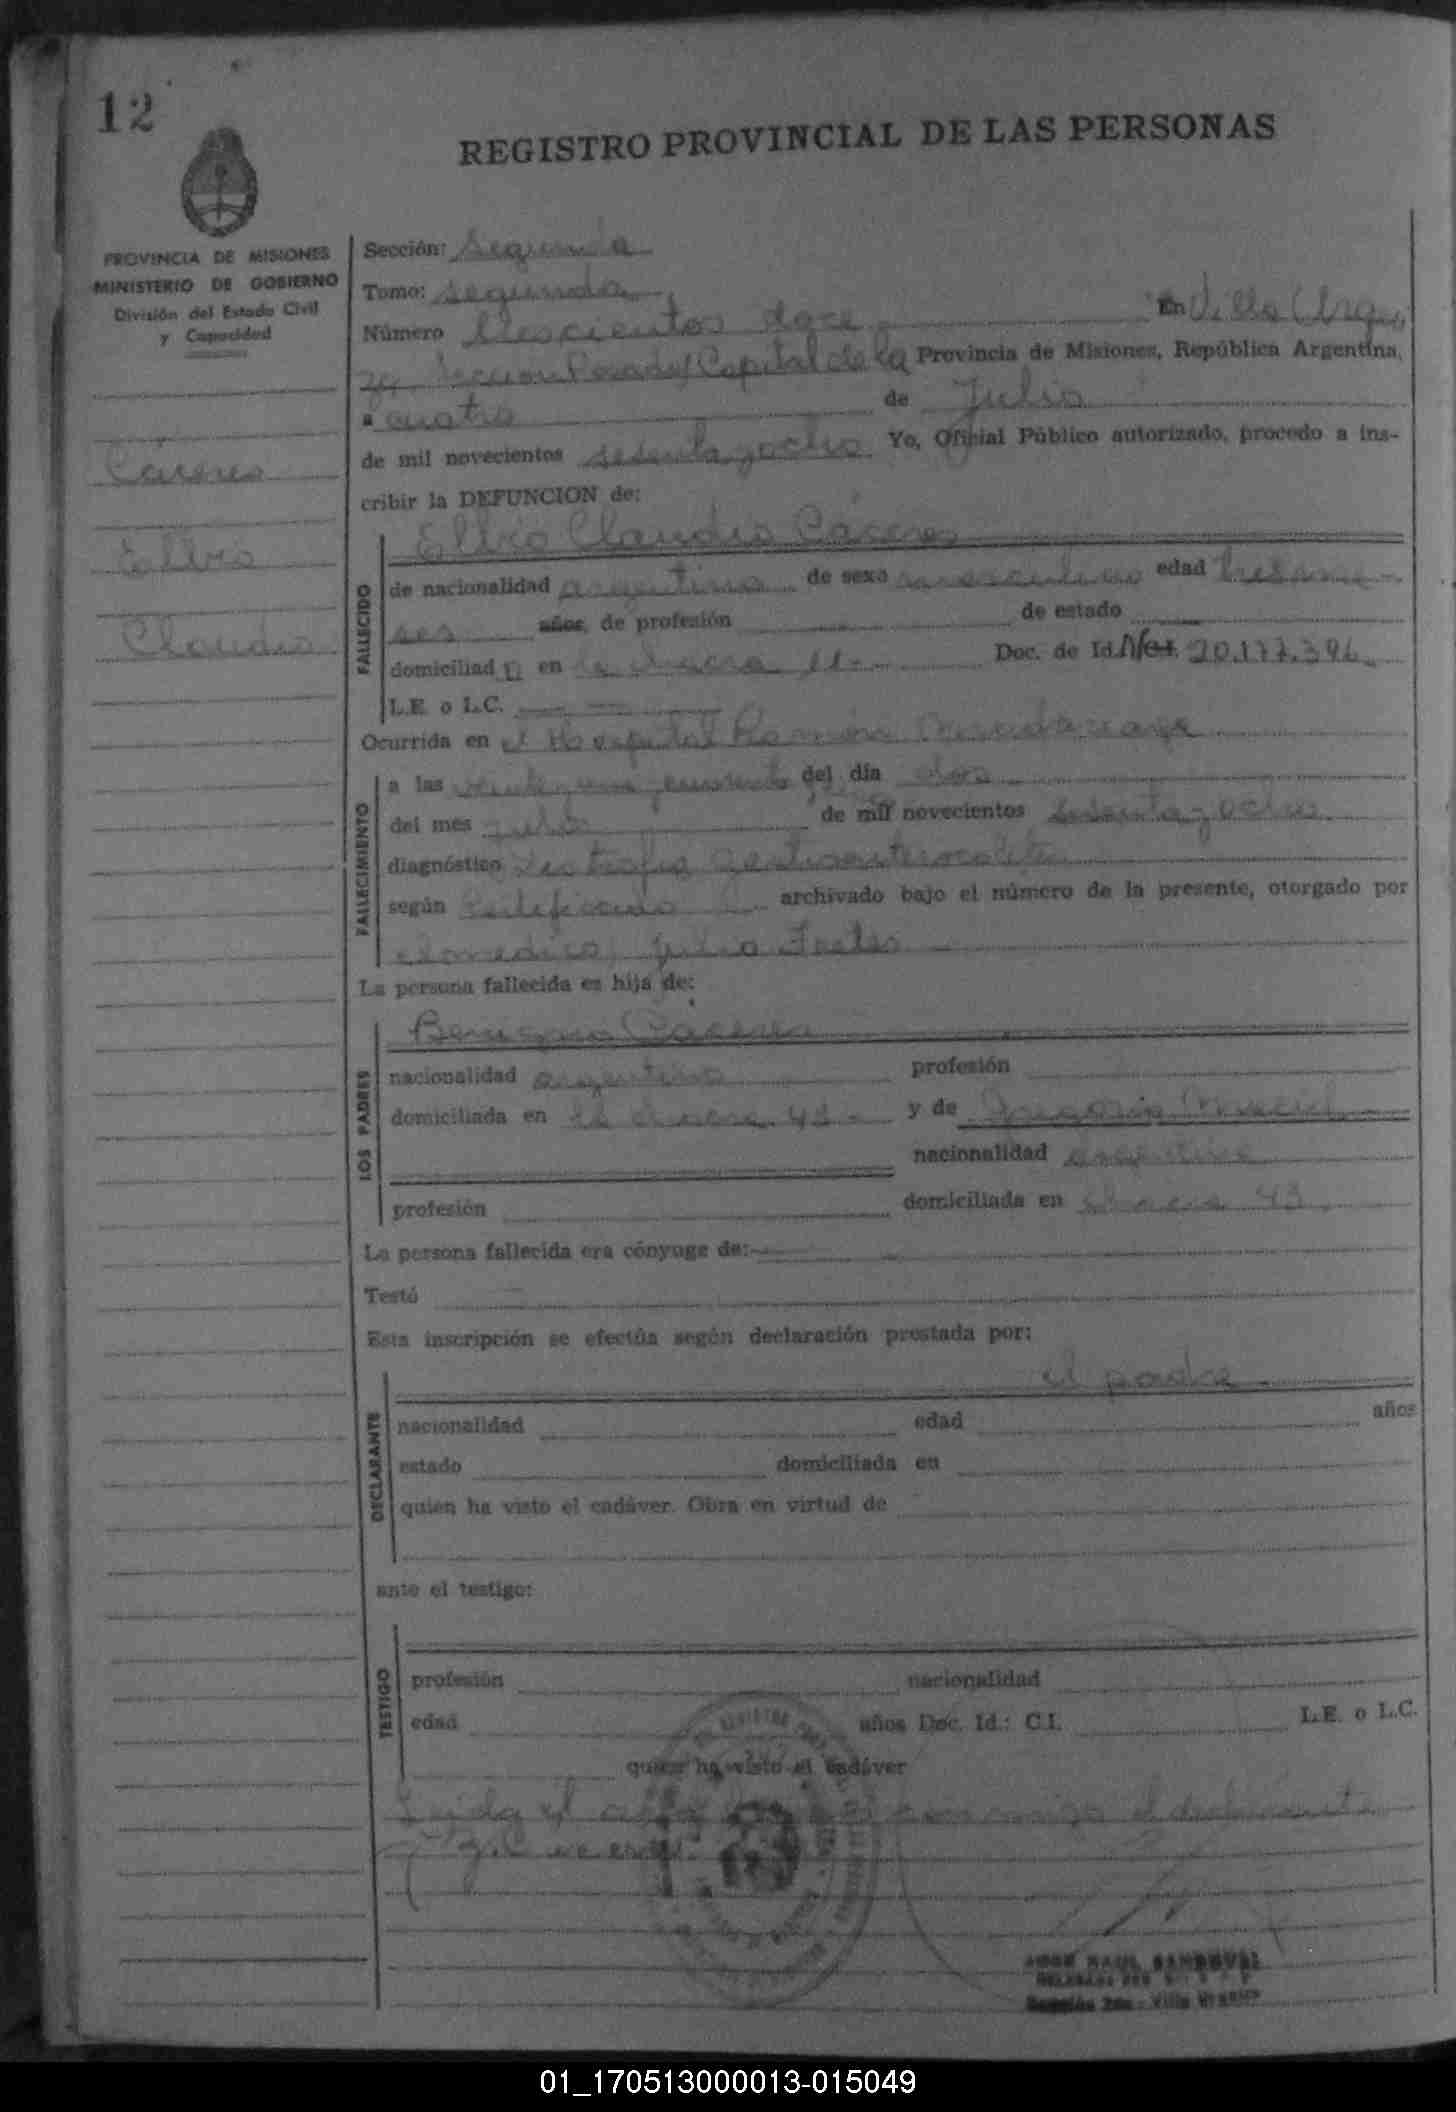 12
REGISTRO PROVINCIAL DE LAS PERSONAS
PROVINCIA DE MISIONES
MINISTERIO DE GOBIERNO
División del Estado Civil
y Capacidad
Cáceres
Elbio
Claudio
Sección: Segunda
Tomo: Segundo
Número trescientos doce En Villa Urqui
za Sección Posadas Capital de la Provincia de Misiones, República Argentina,
a cuatro de Julio
de mil novecientos sesenta y ocho Yo, Oficial Público autorizado, procedo a ins-
cribir la DEFUNCION de:
Elbio Claudio Cáceres
FALLECIDO
de nacionalidad argentino de sexo masculino edad tres me-
ses años, de profesión de estado
domiciliado en la chacra 11 Doc. de Id. 20.177.396
L.E. o L.C.
Ocurrida en el Hospital Ramón Madariaga
FALLECIMIENTO
a las veinte y una del día dos
del mes julio de mil novecientos sesenta y ocho
diagnóstico gastroenterocolitis
según certificado archivado bajo el número de la presente, otorgado por
el médico Julio
La persona fallecida es hija de:
LOS PADRES
Benigno Cáceres
nacionalidad argentino profesión
domiciliada en la chacra 43 y de Gregoria Maciel
nacionalidad argentina
profesión domiciliada en chacra 43
La persona fallecida era cónyuge de:
Testó
Esta inscripción se efectúa según declaración prestada por:
DECLARANTE
el padre
nacionalidad edad años
estado domiciliada en
quien ha visto el cadáver. Obra en virtud de
ante el testigo:
TESTIGO
profesión nacionalidad
edad años Doc. Id.: C.I. L.E. o L.C.
quien ha visto el cadáver
Leída el acta conmigo el declarante
JOSE RAUL SANDOVAL
Sección 2da - Villa Urquiza
01_170513000013-015049